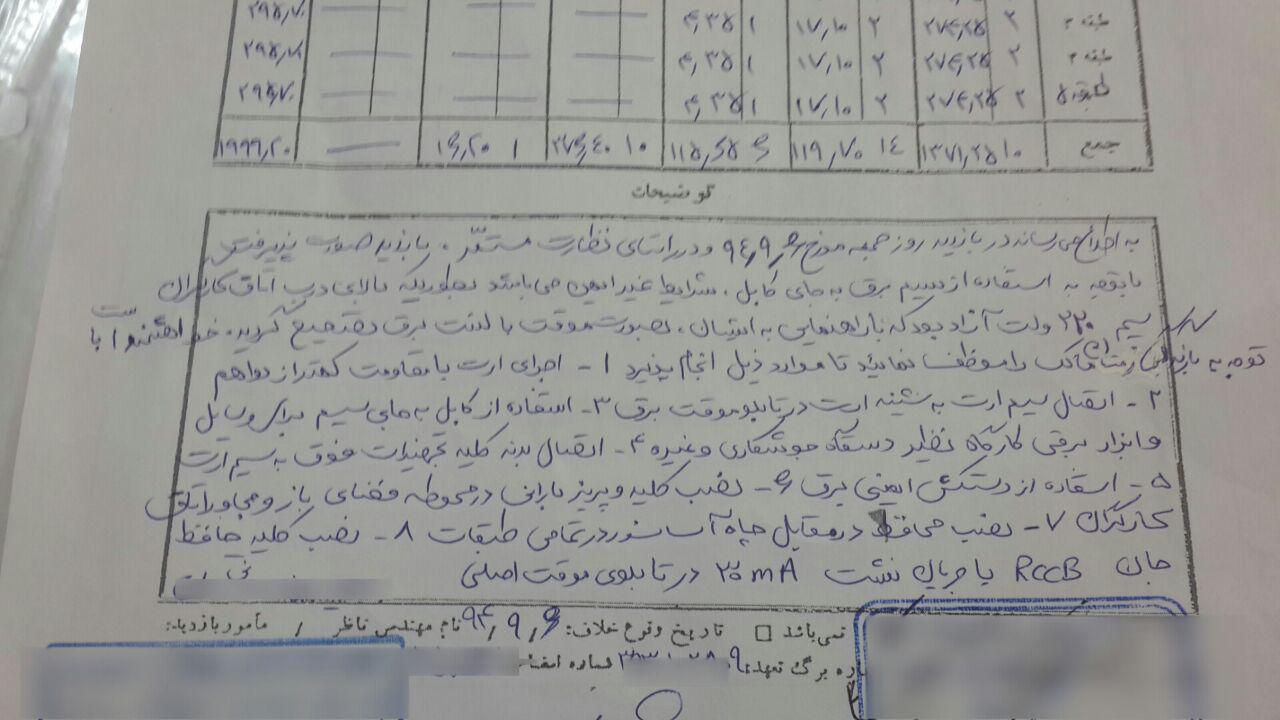 ۲۹۵٫۷۰ ۴٫۳۵ ۱ ۱۷٫۱۰ ۲ ۲۷۴٫۲۵ ۲ طبقه
۲۹۵٫۷۰ ۴٫۳۵ ۱ ۱۷٫۱۰ ۲ ۲۷۴٫۲۵ ۲ طبقه
۲۹۵٫۷۰ ۴٫۳۵ ۱ ۱۷٫۱۰ ۲ ۲۷۴٫۲۵ ۲ طبقه ۵
۱۹۹۹٫۲۰ ۱۶٫۲۰ ۱ ۳۷۶٫۴۰ ۱۰ ۱۱۵٫۶۵ ۶ ۱۱۹٫۷۰ ۱۴ ۱۳۷۱٫۲۵ ۱۰ جمع
توضیحات
به اطلاع می رساند در بازدید روز جمعه مورخ ۹۴٫۹٫۶ و در راستای نظارت مستمر، بازدید صورت پذیرفت
با توجه به استفاده از سیم برق به جای کابل، شرایط غیر ایمن می باشد بطوریکه بالای درب اتاق کارگران
سیم ۲۲۰ ولت آزاد بود که با راهنمایی به اینجانب، بصورت موقت با لنت برق تصحیح گردید.
توجه به مالک را موظف نمائید تا موارد ذیل انجام پذیرد ۱- اجرای ارت با مقاومت کمتر از دو اهم
۲- اتصال سیم ارت به شینه ارت در تابلو موقت برق ۳- استفاده از کابل به جای سیم برای وسایل
و ابزار برقی کارگاه نظیر دستگاه جوشکاری و غیره ۴- اتصال بدنه کلیه تجهیزات فوق به سیم ارت
۵- استفاده از دستکش ایمنی برق ۶- نصب کلید و پریز بارانی در محوطه فضای باز و مجاور اتاق
کارگران ۷- نصب محافظ در مقابل چاه آسانسور در تمامی طبقات ۸- نصب کلید محافظ
جان RCCB با جریان نشت ۳۰mA در تابلوی موقت اصلی
نمی باشد □ تاریخ وقوع خلاف: ۹۴٫۹٫۶ نام مهندس ناظر / مأمور بازدید:
برگ تعهد: شماره